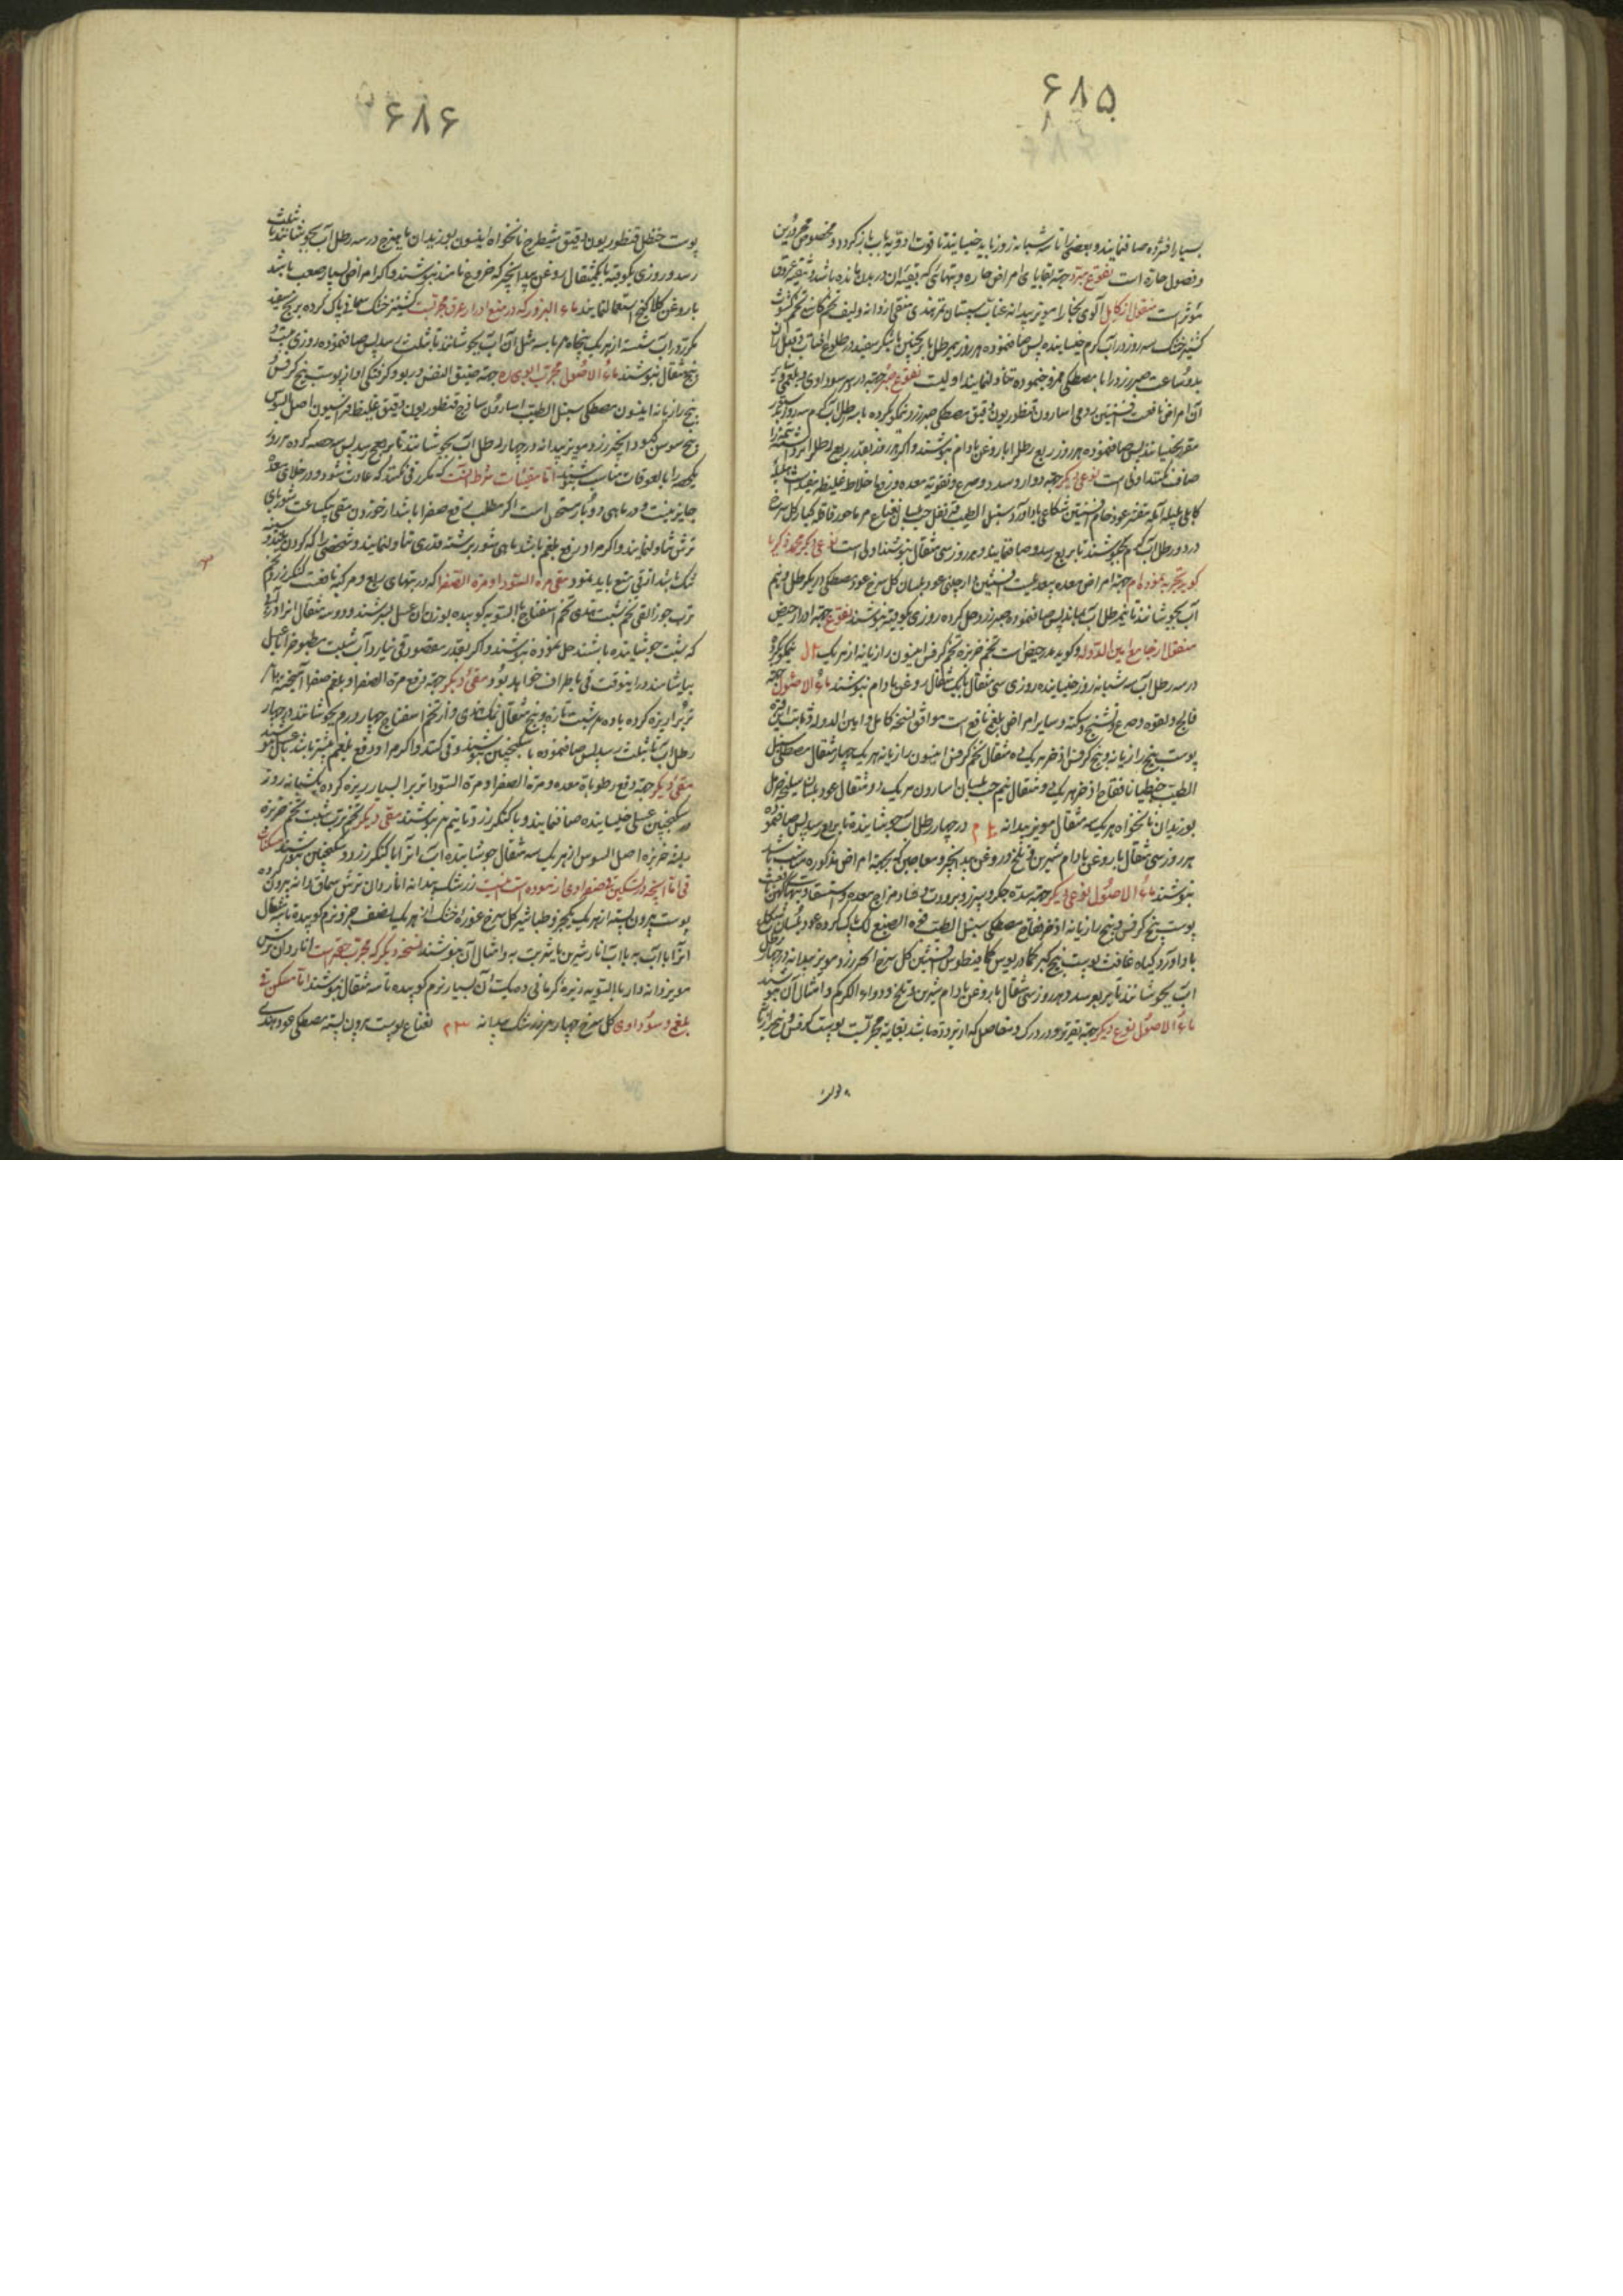 ۶۸۵
بسیار افشرده صاف نمایند و بعضی را تا سه شبانه روز باید خیسانید تا قوت ادویه بآب بازگردد و مخصوص محرورین
و فصول حاره است نقوع مبرد جهة بقایای امراض حاره و تبهائی که بقیه آن در بدن مانده باشد و تنقیه عروق
مؤثر است منقول از کامل آلوی بخارا مویز بیدانه عناب سپستان تمر هندی منقی از دانه و لیف تخم کاسنی تخم کشوث
کشنیز خشک سه روز در آب گرم خیسانیده پس صاف نموده هر روز نیم رطل با ترنجبین یا شکر سفید در طلوع آفتاب و قبل از آن
بدو ساعت صبر زرد را با مصطکی ممزوج نموده تناول نمایند اولیست نقوع صبر جهة در سر سوداوی و بلغمی و سایر
آن امراض نافعست افسنتین رومی اسارون قنطوریون دقیق مصطکی صبر زرد نیمکوب کرده با سه رطل آب گرم سه روز
صاف نموده هر روز ربع رطل را با روغن بادام بنوشند و اگر هر روز بقدر ربع رطل
صاف کنند اولی است نوعی دیگر جهة دوار و سدد و صرع و تقویة معده و نزف اخلاط غلیظه
در دو رطل آب گرم بجوشند تا بربع رسد و صاف نمایند و هر روز سی مثقال بنوشند اولی است نوعی دیگر محمد زکریا
گوید تجربه نموده‌ام جهة امراض معده بعدیلست افسنتین دارچینی عود بلسان گل سرخ عود مصطکی در یک رطل و نیم
آب بجوشانند تا نیم رطل آب بماند پس صاف نموده صبر زرد حل کرده روزی یکوقیه بنوشند نقوع جهة ادرار حیض
منقول از جامع امین الدوله و گوید مدر حیض است تخم خربزه تخم کرفس انیسون رازیانه از هر یک
در سه رطل آب سه شبانه روز خیسانیده روزی سی مثقال با یک مثقال روغن بادام بنوشند ماء الاصول جهة
فالج و لقوه و صرع و تشنج و سکته و سایر امراض بلغمی نافع است موافق نسخه کامل و امین الدوله
پوست بیخ رازیانه و بیخ کرفس اذخر هر یک ده مثقال تخم کرفس انیسون رازیانه هر یک چهار مثقال مصطکی سنبل
الطیب جنطیانا فقاح اذخر هر یک دو مثقال و نیم حب بلسان اسارون هر یک دو مثقال عود بلسان سلیخه
بوزیدان نانخواه هر یک سه مثقال مویز بیدانه در چهار رطل آب جوشانیده تا بربع رسد پس صاف نموده
هر روز سی مثقال با روغن بادام شیرین و تلخ و روغن بیدانجیر و معاجین که بجهة امراض مذکوره مناسب باشد
بنوشند ماء الاصول نوعی دیگر جهة سده جگر و سپرز و برودت و فساد مزاج معده و استسقاء
پوست بیخ کرفس و بیخ رازیانه اذخر فقاح مصطکی سنبل الطیب فوه الصبغ لک پاک کرده عود بلسان
باداورد گیاه غافث پوست بیخ کبر کمادریوس کمافیطوس افسنتین گل سرخ زرد و مویز بیدانه در چهار رطل
آب بجوشانند تا بربع رسد و هر روز سی مثقال با روغن بادام شیرین و تلخ و دواء الکرکم و امثال آن بنوشند
ماء الاصول نوع دیگر جهة نقرس و درد ورک و مفاصل که از برودت باشد بغایة مجربست پوست کرفس و بیخ رازیانه
۶۸۶
پوست حنظل قنطوریون دقیق شیطرج نانخواه انیسون بوزیدان ماهیزهرج در سه رطل آب بجوشانند تا بثلث
رسد و روزی یکوقیه با یکمثقال روغن بیدانجیر که خروع نامند بنوشند و اگر امراض بسیار صعب باشد
با روغن کلکلانج استعمال نمایند ماء البزور که در منع ادرار عرق مجربست کشنیز خشک سماق پاک کرده برنج سفید
مکرر در آب شسته از هر یک پنجاه درم با سه مثل آن آب بجوشانند تا بثلث رسد پس صاف نموده روزی بیست و
پنج مثقال بنوشند ماء الاصول مجرب ابوی ره جهة ضیق النفس و ربو و گرفتگی آواز پوست بیخ کرفس
بیخ رازیانه انیسون مصطکی سنبل الطیب اسارون ساذج قنطوریون دقیق غلیظ فراسیون اصل السوس
بیخ سوسن کبود انجیر زرد مویز بیدانه در چهار رطل آب بجوشانند تا بربع رسد پس سه حصه کرده هر روز
یکحصه را با لعوقات مناسب بنوشند اما مقیئات شرط آنست که مکرر قی نکنند که عادت نشود و در خلای معده
جایز نیست و در ماهی دو بار مستحسن است اگر مطلب دفع صفرا باشد از خوردن مقی یکساعت شوربای
ترش تناول نمایند و اگر مراد رفع بلغم باشد ماهی شور برشته قدری تناول نمایند و شخصی را که گردن بلند و سینه
تنگ باشد از قی منع باید نمود مقی مرة السودا و مرة الصفرا که در تبهای ربع و مرکبه نافعست کنگرزد تخم
ترب جوز القی تخم شبت هندی تخم اسفناج بالسویه کوبیده بوزن آن عسل بسرشند و دو سه مثقال آنرا در آبی
که شبت جوشانیده باشند حل نموده بنوشند و اگر بقدر مقصود قی نیارد آب شبت مطبوخ را با عسل
بیاشامند در اینوقت قی باطراف خواهد بود مقی دیگر جهة دفع مرة الصفرا و بلغم صفرا آمیخته
ترب را ریزه کرده باده درم شبت تازه و پنج مثقال نمک هندی و از تخم اسفناج چهار درم بجوشانند در چهار
رطل آب تا بثلث رسد پس صاف نموده با سکنجبین بنوشند و قی کنند و اگر مراد دفع بلغم بیشتر باشد
مقی دیگر جهة دفع رطوبات معده و مرة الصفرا و مرة السودا ترب را بسیار ریزه کرده یکشبانه روز
در سکنجبین عسلی خیسانیده صاف نمایند و با کنگرزد و تا نیم درم بنوشند مقی دیگر تخم ترب شبت تخم خربزه
بیخ خربزه اصل السوس از هر یک سه مثقال جوشانیده آب آنرا با کنگرزد و سکنجبین بنوشند مسکنات
قی اما آنچه در تسکین قی صفراوی آزموده است اینست زرشک بیدانه اناردان ترش سماق دانه بیرون کرده
پوست بیرون پسته از هر یک یکجزو طباشیر گل سرخ غوره خشک از هر یک نصف جزو نرم کوبیده تا سه مثقال
آنرا با آب به یا آب انار شیرین یا شربت به و امثال آن بنوشند نسخه دیگر که مجرب حقیر است اناردان ترش
مویز دانه دار بالسویه زیره کرمانی ده یک آن بسیار نرم کوبیده تا سه مثقال بنوشند اما مسکن قی
بلغمی و سوداوی گل سرخ چهار درم زرشک بیدانه نعناع پوست بیرون پسته مصطکی عود هندی